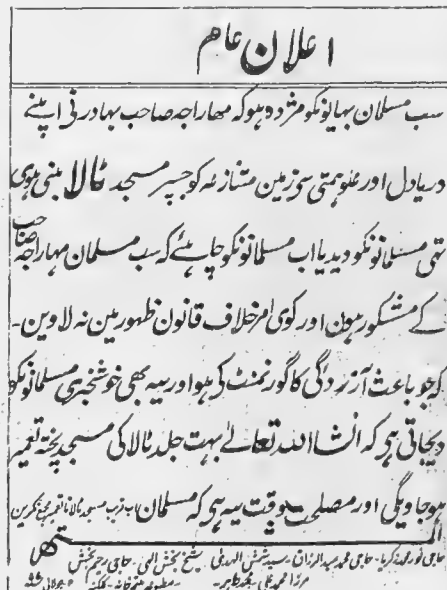 اعلان عام
سب مسلمان بہایونکو مژدہ ہو کہ مہاراجہ صاحب بہادر نی اپنے
دریادل اور علوہمتی سی زمین متنازعہ کو جسپر مسجد ٹالا بنی ہوی
تہی مسلمانونکو دیدیا اب مسلمانونکو چاہئے کہ سب مسلمان مہاراجہ صاحب
کے مشکور ہون اور کوی امر خلاف قانون ظہور مین نہ لاوین -
کہ جو باعث آزردگی کا گورنمنٹ کی ہو اور یہ بھی خوشخبری مسلمانونکو
دیجاتی ہی کہ انشااللہ تعالے بہت جلد ٹالا کی مسجد پختہ تعمیر
ہوجاویگی اور مصلحت وقت یہ ہی کہ مسلمان اب قرب مسجد ٹالا کا
المشتہر
حاجی نور محمد زکریا - حاجی محمد عبدالرزاق - سید شمس الہدی شیخ بخش الہی - حاجی رحیم بخش
مرزا محمد علی -